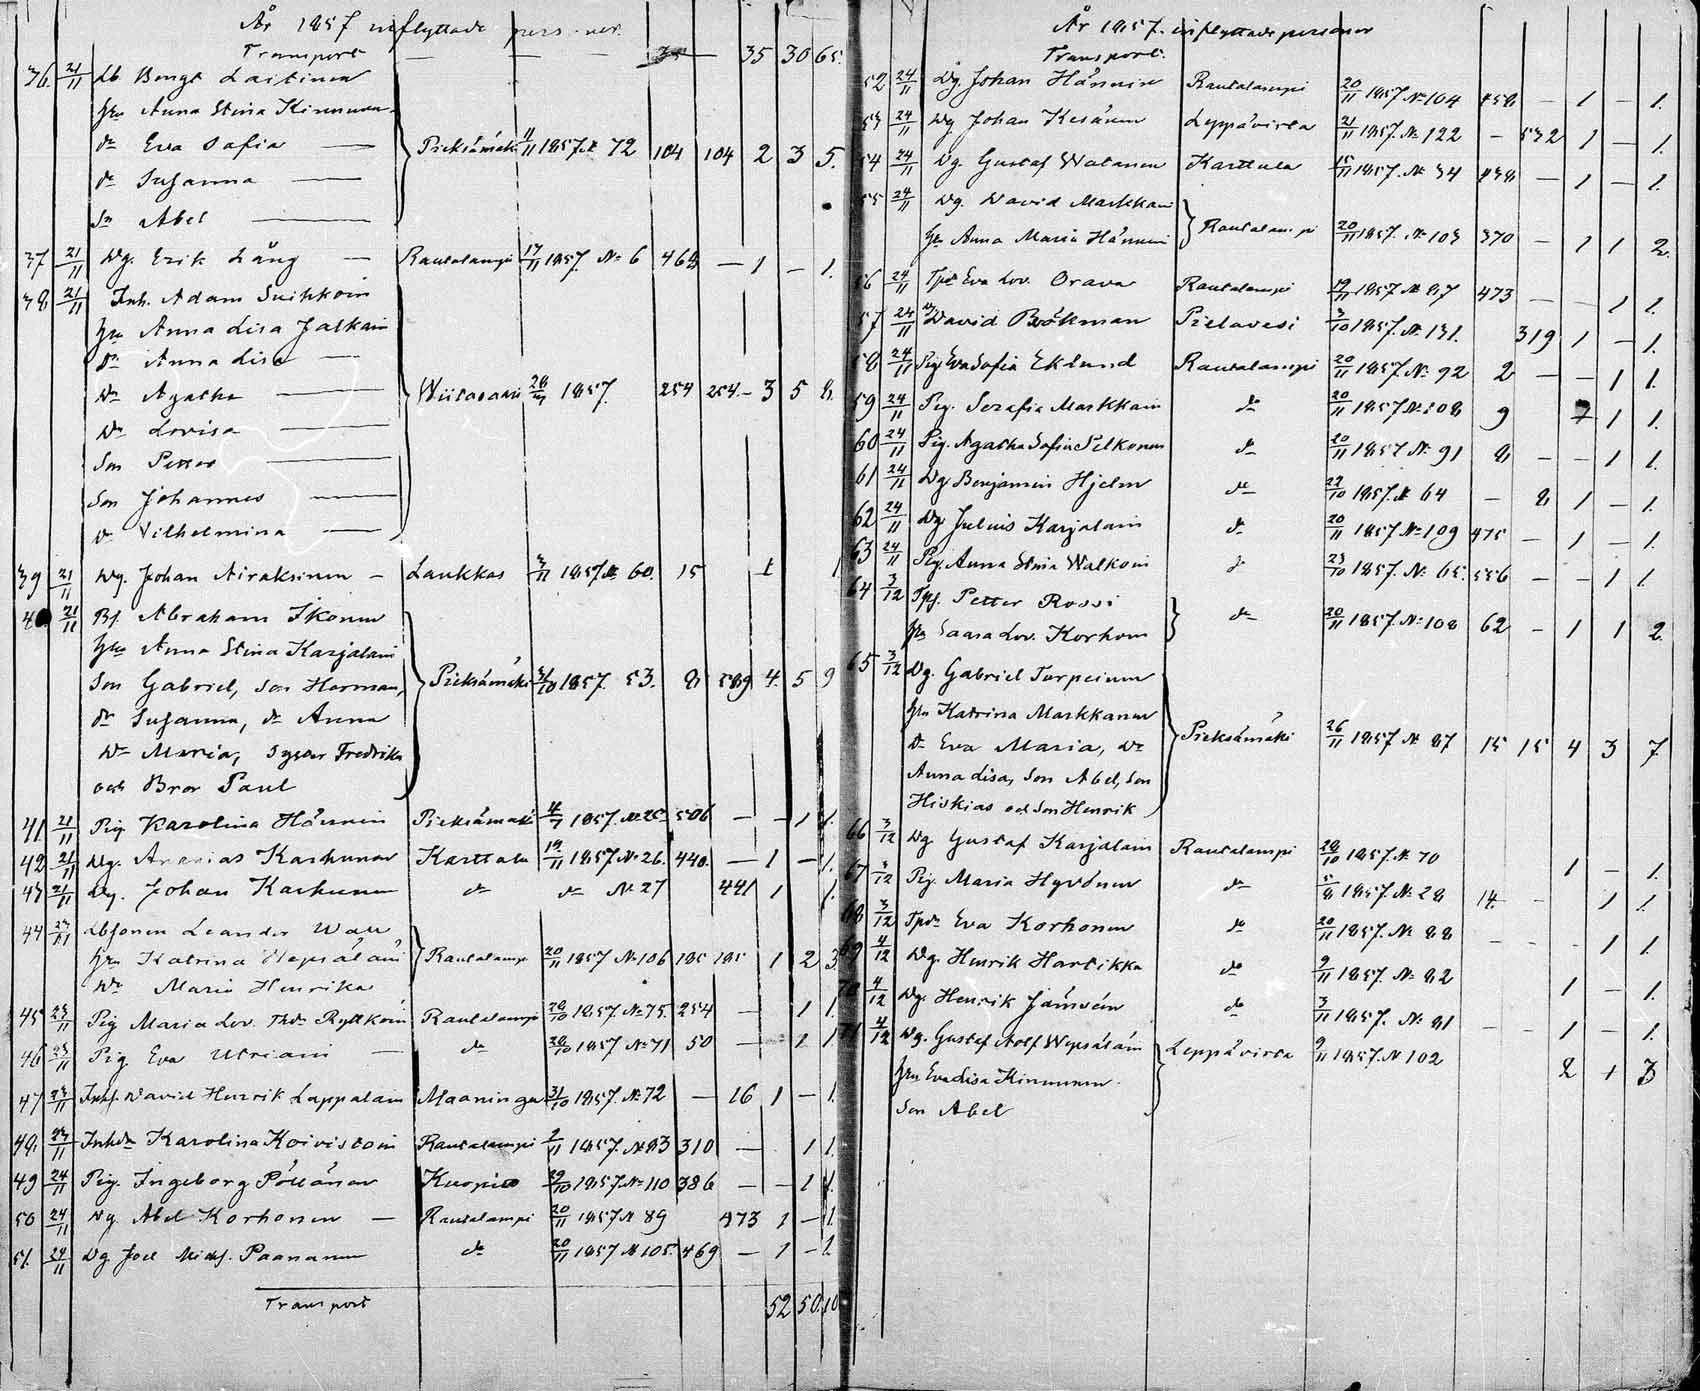 År 1857 inflyttade personer.
Transport — — — 35 30 65.
36. 21/11 Lb. Bengt Laitinen
hu Anna Stina Kinnunen
dr Eva Sofia — Pieksämäki 11/11 1857 № 72 104 104 2 3 5.
dr Susanna —
Sn Abel —
37 21/11 Dg. Erik Lång — Rautalampi 17/11 1857. № 6 463 — 1 — 1.
38 21/11 Inh. Adam Suihkoin
hu Anna Lisa Jalkain
dr Anna Lisa —
dr Agatha — Wiitasaari 1857. 254 254 — 3 5 8.
dr Lovisa —
Son Petter —
Son Johannes —
dr Vilhelmina —
39 21/11 Dg. Johan Airaksinen — Laukkas 3/11 1857 № 60. 15 1 1
40 21/11 Bd. Abraham Ikonen
hu Anna Stina Karjalain
Son Gabriel, Son Herman, Pieksämäki 1857. 53. 8 589 4. 5 9
dr Susanna, dr Anna
dr Maria, Syster Fredrika
och Bror Paul
41 21/11 Pig Karolina Hännin Pieksämäki 1857. № 25 506 — — 1 1.
42 21/11 Dg. Ananias Karhunen Karttula 19/11 1857. № 26. 440. — 1 — 1.
43 21/11 Dg. Johan Karhunen do do № 27 441 1 1.
44 23/11 Leander Wall
hu Katrina Wepsäläin Rautalampi 20/11 1857 № 106 185 185 1 2 3.
dr Maria Henrika
45 23/11 Pig Maria Lov. Rytkoin Rautalampi 28/10 1857. № 75. 254 — 1 1.
46 23/11 Pig. Eva Utriain — do 28/10 1857. № 71 50 — 1 1
47 23/11 Inh. David Henrik Lappalain Maaninga 31/10 1857. № 72 — 16 1 — 1.
48. 23/11 Inhdr Karolina Koivistoin Rautalampi 2/11 1857. № 83 310 — 1 1.
49 24/11 Pig. Ingeborg Pöllänen Kuopio 29/10 1857. № 110 386 — — 1 1.
50 24/11 Dg. Abel Korhonen — Rautalampi 20/11 1857 № 89 473 1 — 1.
51. 24/11 Dg Joel Paananen do 20/11 1857 № 105. 469 — 1 — 1.
Transport 52 50 10
År 1857. inflyttade personer
Transport.
52 24/11 Dg. Johan Hännin Rautalampi 20/11 1857. № 104 458 — 1 — 1.
53 24/11 Dg Johan Kesänen Leppävirta 21/11 1857. № 122 — 532 1 — 1.
54 24/11 Dg. Gustaf Watanen Karttula 15/11 1857. № 34 438 — 1 — 1.
55 24/11 Dg. David Markkain
hu Anna Maria Hännin Rautalampi 20/11 1857. № 103 370 — 1 1 2.
56 24/11 Tpdr Eva Lov. Orava Rautalampi 19/11 1857 № 87 473 — — 1 1.
57 24/11 Dg David Bräkman Pielavesi 3/10 1857. № 131. 319 1 — 1.
58 24/11 Pig Eva Sofia Eklund Rautalampi 20/11 1857. № 92 2 — — 1 1.
59 24/11 Pig. Serafia Markkain do 20/11 1857 № 108 9 1 1.
60 24/11 Pig. Agatha Sofia Pelkonen do 20/11 1857 № 91 8 — — 1 1.
61 24/11 Dg Benjamin Hjelm do 22/10 1857. № 64 — 8 1 — 1.
62 24/11 Dg Julius Karjalain do 20/11 1857 № 109 475 — 1 — 1.
63 24/11 Pig. Anna Stina Walkoin do 23/10 1857. № 65. 556 — — 1 1.
64 3/12 Tpf. Petter Rossi
hu Saara Lov. Korhoin do 20/11 1857. № 108 62 — 1 1 2.
65 3/12 Dg. Gabriel Turpeinen
hu Katrina Markkanen
dr Eva Maria, dr Pieksämäki 26/11 1857 № 87 15 15 4 3 7.
Anna Lisa, Son Abel, Son
Hiskias och Son Henrik
66 3/12 Dg Gustaf Karjalain Rautalampi 28/10 1857. № 70 1 — 1.
67 3/12 Pig. Maria Hyvönen do 5/8 1857. № 28 14. — 1 1.
68 3/12 Tpdr Eva Korhonen do 20/11 1857. № 88 — — 1 1.
69 4/12 Dg. Henrik Hartikka do 9/11 1857. № 82 1 — 1.
70 4/12 Dg. Henrik Jämsén do 3/11 1857. № 81 — — 1 — 1.
71 4/12 Dg. Gustaf Adolf Wepsäläin Leppävirta 9/11 1857. № 102
hu Eva Lisa Kinnunen. 2 1 3
Son Abel